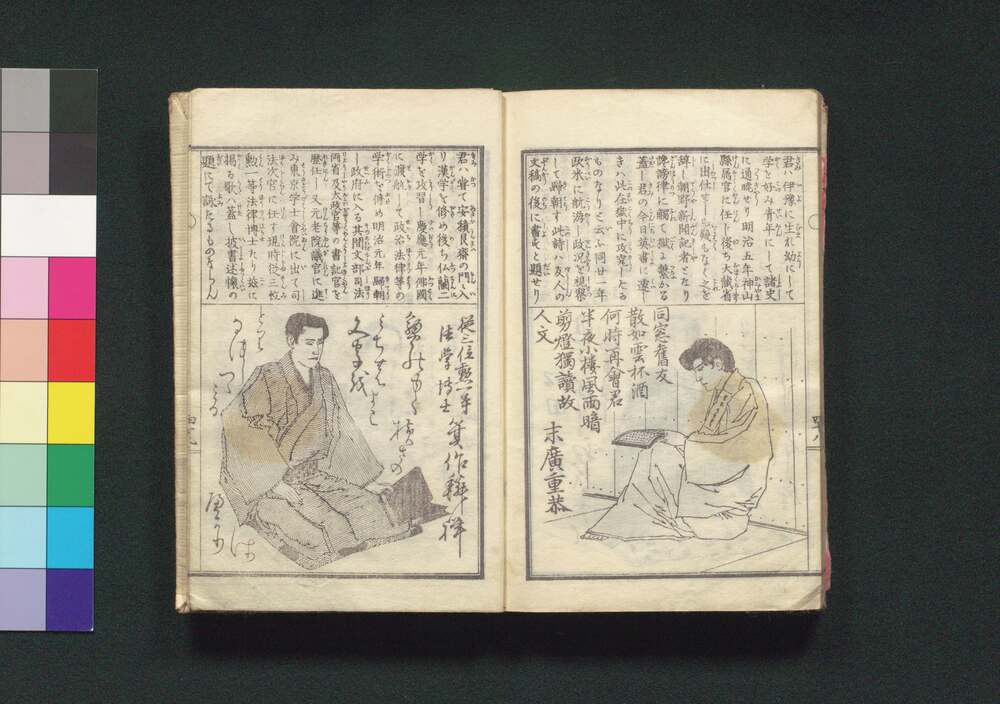 君ハ伊豫に生れ幼にして
学を好み青年にして諸史
に通暁せり明治五年神山
縣属官に任し後ち大蔵省
に出仕せしか幾もなく之を
辞し朝野新聞記者となり
讒謗律に觸て獄に繋かる
蓋し君の今日英書に達し
きハ此在獄中に攻究したる
ものなりと云ふ同廿一年
欧米に航海し政况を視察
して歸朝す此詩ハ友人の
文稿の後に書すと題せり
同窓舊友
散如雲杯酒
何時再會君
半夜小樓風雨暗
剪燈獨讀故
人文
末廣重恭
四十八
君ハ甞て安積艮斎の門に入
り漢学を修め後ち佛蘭二
学を攻習し慶應元年佛國
に渡航して政治法律等の
学術を修め明治元年歸朝
し政府に入る其間文部司法
両省及太政官等の書記官を
歴任し又元老院議官に進
み東京学士會院に出て司
法次官に任す現時従三位
勲一等法律博士たり茲に
掲る歌ハ蓋し披書述懐の
題にて詠たるものならん
従三位勲一等
法学博士
箕作麟祥
四十九